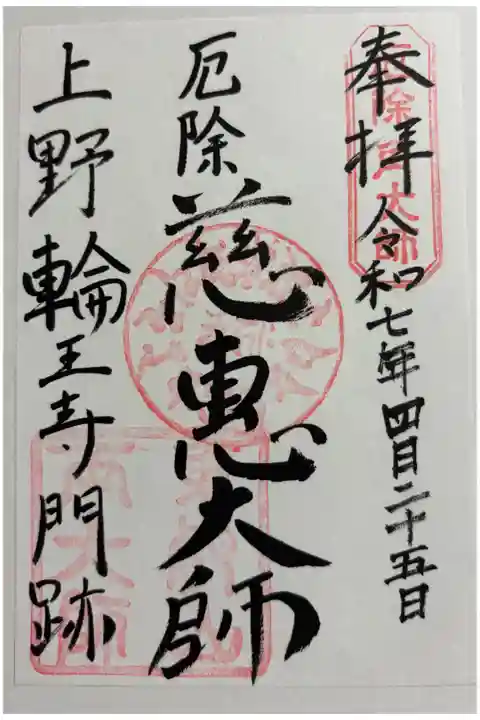 奉拝 令和七年四月二十五日
厄除 慈恵大師
上野輪王寺門跡
厄除角大師